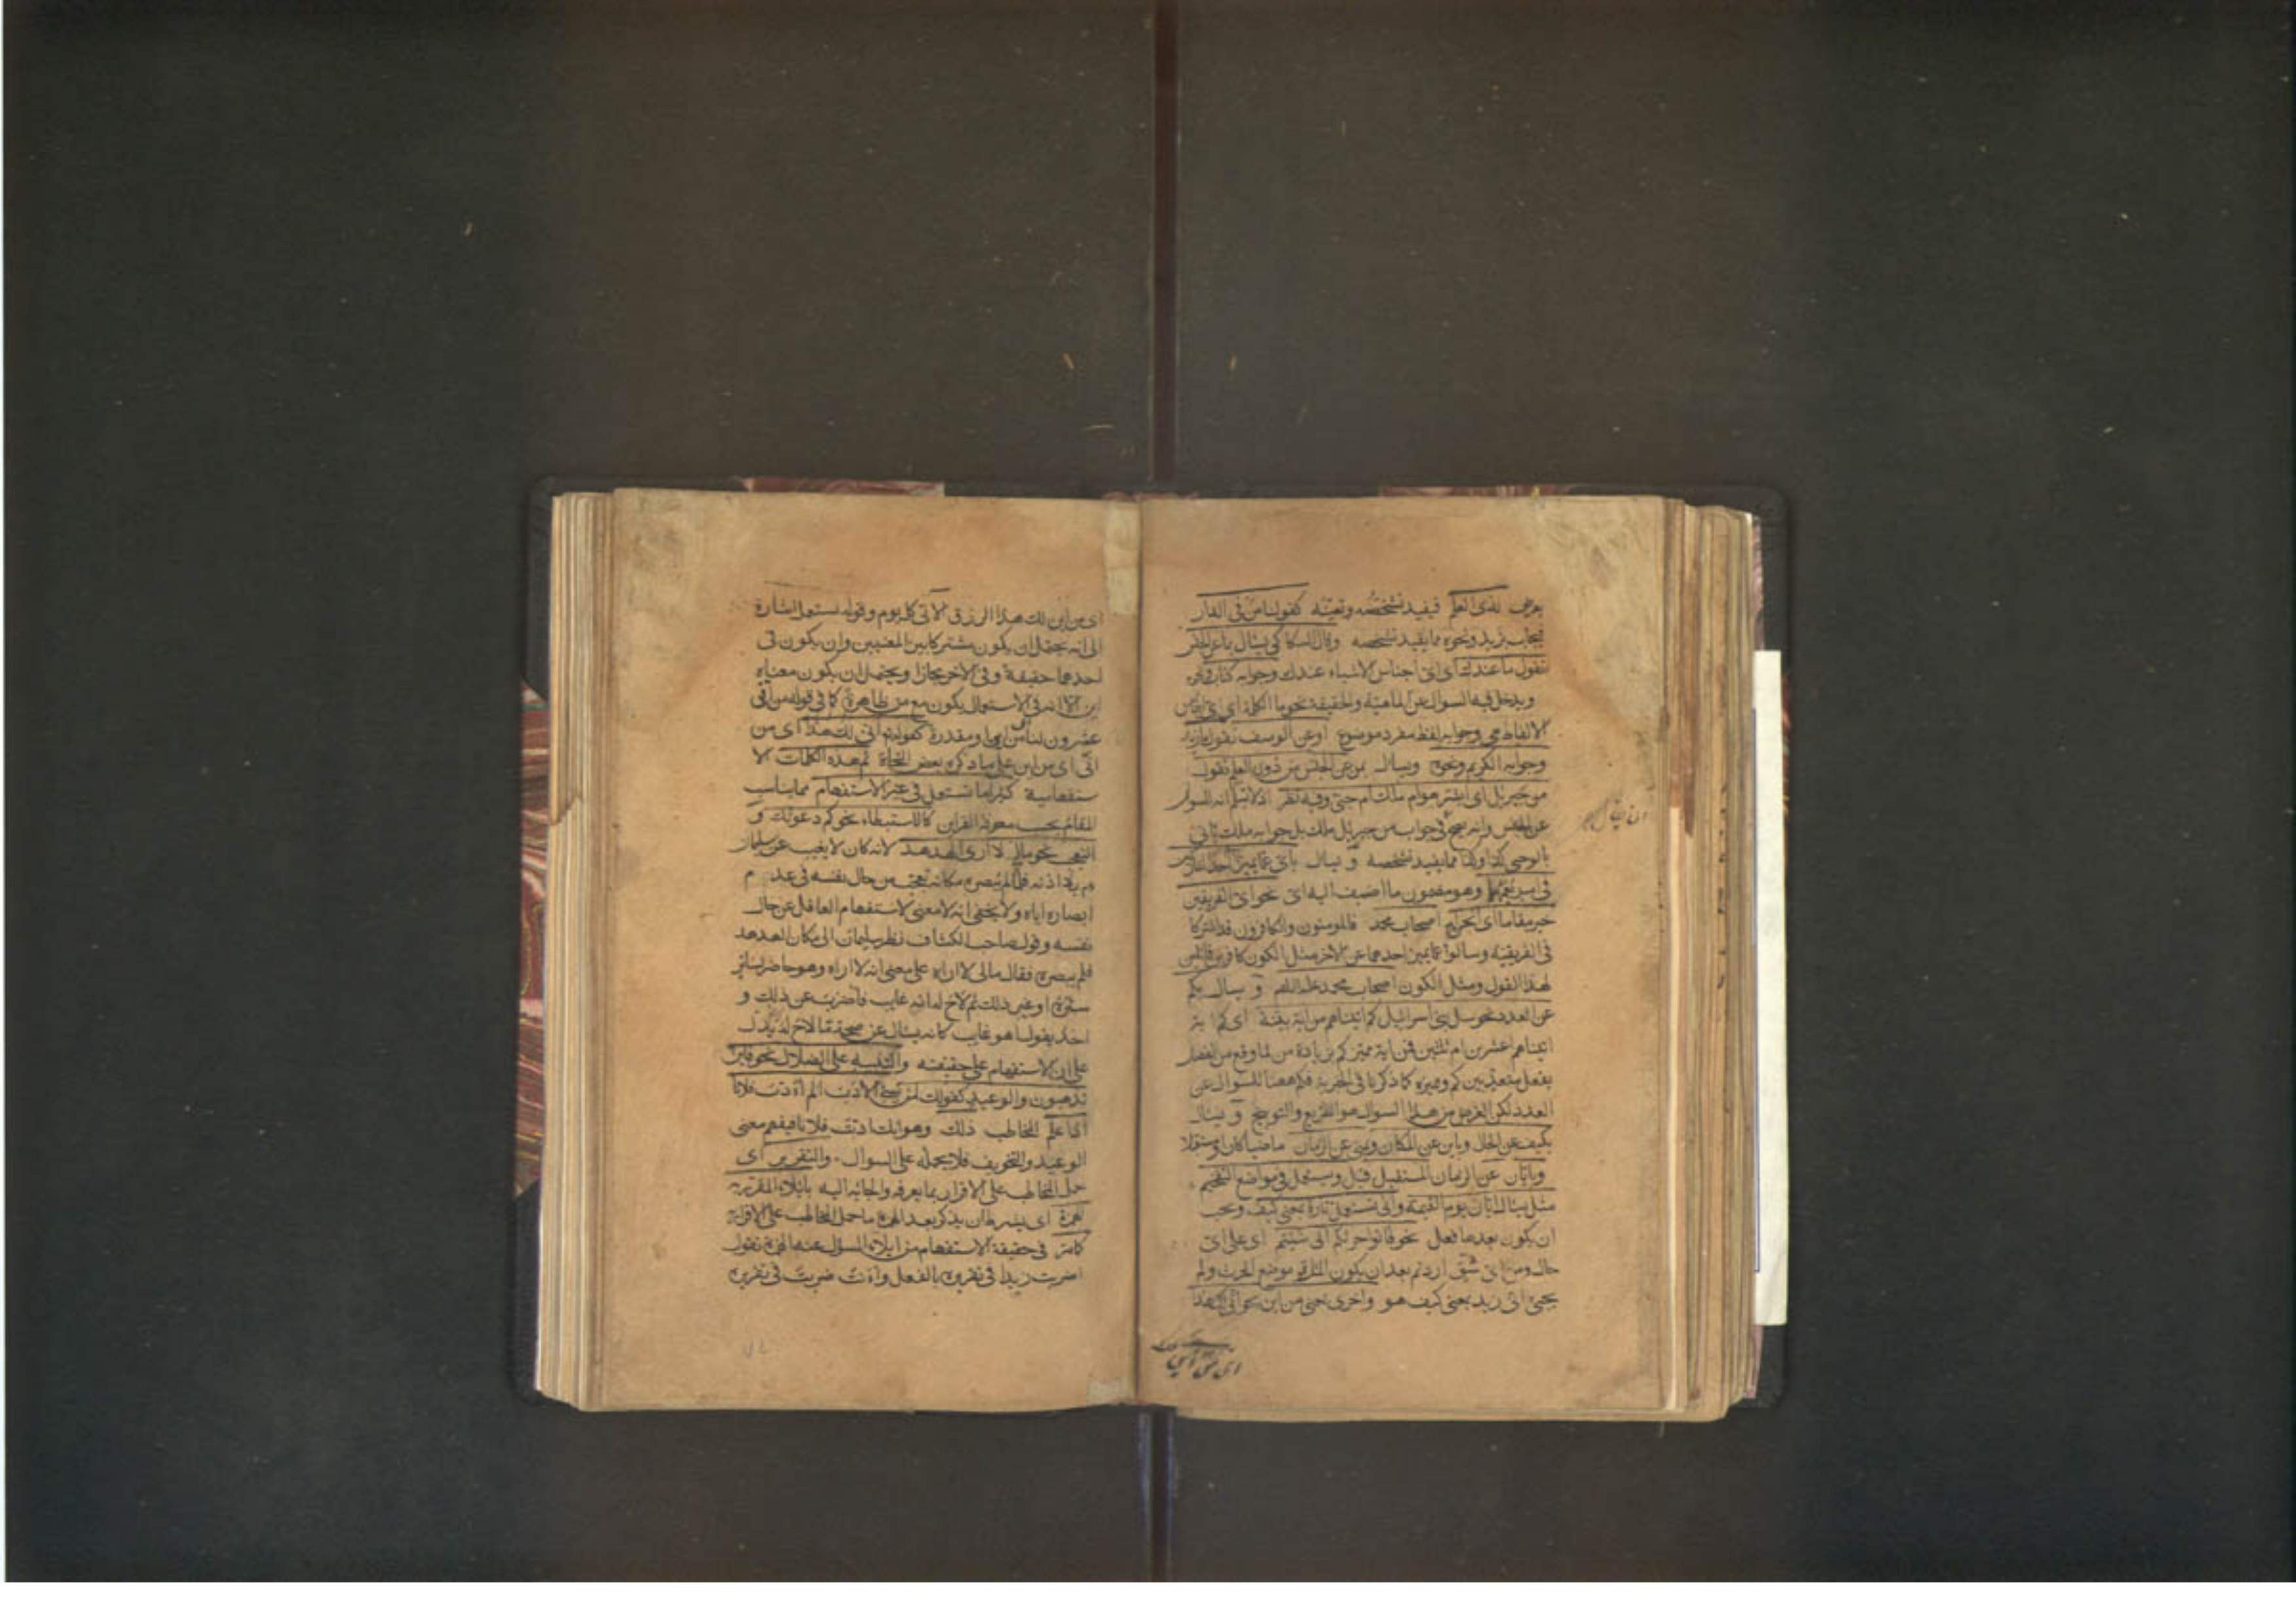 يعرض لذى العلم فيفيد تشخصه وتعينه كقولنا من فى الدار
فيجاب بزيد ونحوه مما يفيد تشخصه وقال السكاكى يسأل بما عن الجنس
تقول ما عندك اى اى اجناس الاشياء عندك وجوابه كتاب ونحوه
ويدخل فيه السوال عن الماهية والحقيقة نحو ما الكلمة اى اى اجناس
الالفاظ هى وجوابه لفظ مفرد موضوع اوعن الوصف تقول ما زيد
وجوابه الكريم ونحوه ويسال بمن عن الجنس من ذوى العلم تقول
من جبريل اى ابشر هوام ملك ام جنى وفيه نظر اذ لا نسلم انه للسوال
عن الجنس وانه يصح فى جواب من جبريل ملك بل جوابه ملك ياتى
بالوحى كذا وكذا مما يفيد تشخصه و يسال باى عما يميز احد المتشاركين
فى امر يعمهما وهو مضمون ما اضيف اليه اى نحو اى الفريقين
خير مقاما اى انحن ام اصحاب محمد فالمومنون والكافرون قد اشتركا
فى الفريقية وسالوا عما يميز احدهما عن الاخر مثل الكون كافرين قائلين
لهذا القول ومثل الكون اصحاب محمد عليه السلام و يسال بكم
عن العدد نحو سل بنى اسرائيل كم اتيناهم من اية بينة اى كم اية
اتيناهم اعشرين ام ثلثين فمن اية مميز كم بزيادة من لما وقع من الفصل
بفعل متعد بين كم ومميزه كما ذكرنا فى الخبرية فكم ههنا للسوال عن
العدد لكن الغرض من هذا السوال هو التقريع والتوبيخ و يسال
بكيف عن الحال وباين عن المكان وبمتى عن الزمان ماضيا كان او مستقبلا
وبايان عن الزمان المستقبل قيل ويستعمل فى مواضع التفخيم
مثل يسال ايان يوم القيمة وانى تستعمل تارة بمعنى كيف ويجب
ان يكون بعدها فعل نحو فاتوا حرثكم انى شئتم اى على اى
حال ومن اى شق اردتم بعد ان يكون الماتى موضع الحرث ولم
يجئ انى زيد بمعنى كيف هو واخرى بمعنى من اين نحو انى لك هذا
اى من اين لك هذا الرزق الآتى كل يوم وقوله تستعمل اشارة
الى انه يحتمل ان يكون مشتركا بين المعنيين وان يكون فى
احدهما حقيقة وفى الاخر مجازا ويحتمل ان يكون معناه
اين الا انه فى الاستعمال يكون مع من ظاهرة كما فى قوله من انى
عشرون لنا اى من اين او مقدرة كقوله انى لك هذا اى من
انى اى من اين على ما ذكره بعض النحاة ثم هذه الكلمات الا
ستفهامية كثيرا ما تستعمل فى غير الاستفهام مما يناسب
المقام بحسب معونة القراين كالاستبطاء نحو كم دعوتك و
التعجب نحو مالى لا ارى الهدهد لانه كان لا يغيب عن سليمان
م بلا اذنه فلما لم يبصره مكانه تعجب من حال نفسه فى عدم
ابصاره اياه ولا يخفى انه لا معنى لاستفهام العاقل عن حال
نفسه وقول صاحب الكشاف نظر سليمان الى مكان الهدهد
فلم يبصره فقال مالى لا اراه على معنى انه لا اراه وهو حاضر لساتر
ستره او غير ذلك ثم لاح له انه غايب فاضرب عن ذلك و
اخذ يقول اهو غايب كانه يسال عن صحة ما لاح له يدل
على ان الاستفهام على حقيقته والتنبيه على الضلال نحو فاين
تذهبون والوعيد كقولك لمن يسئ الادب الم اؤدب فلانا
اذا علم المخاطب ذلك وهو انك ادبت فلانا فيفهم معنى
الوعيد والتخويف فلا يحمله على السوال والتقرير اى
حمل المخاطب على الاقرار بما يعرفه والجائه اليه بايلاء المقرر به
الهمزة اى بشرط ان يذكر بعد الهمزة ما حمل المخاطب على الاقرار به
كما مر فى حقيقة الاستفهام من ايلاء المسؤل عنه الهمزة تقول
اضربت زيدا فى تقريره بالفعل واانت ضربت فى تقريره